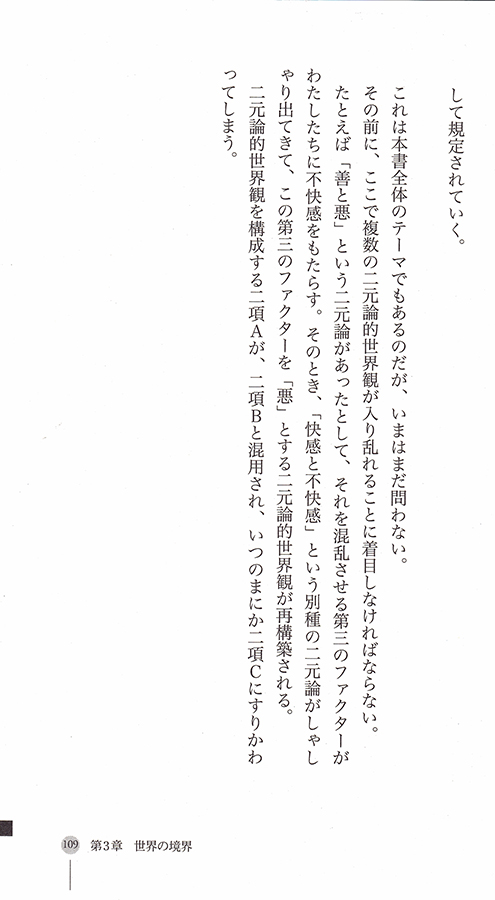 して規定されていく。
これは本書全体のテーマでもあるのだが、いまはまだ問わない。
その前に、ここで複数の二元論的世界観が入り乱れることに着目しなければならない。
たとえば「善と悪」という二元論があったとして、それを混乱させる第三のファクターが
わたしたちに不快感をもたらす。そのとき、「快感と不快感」という別種の二元論がしゃし
ゃり出てきて、この第三のファクターを「悪」とする二元論的世界観が再構築される。
二元論的世界観を構成する二項Aが、二項Bと混用され、いつのまにか二項Cにすりかわ
ってしまう。
109 第3章 世界の境界